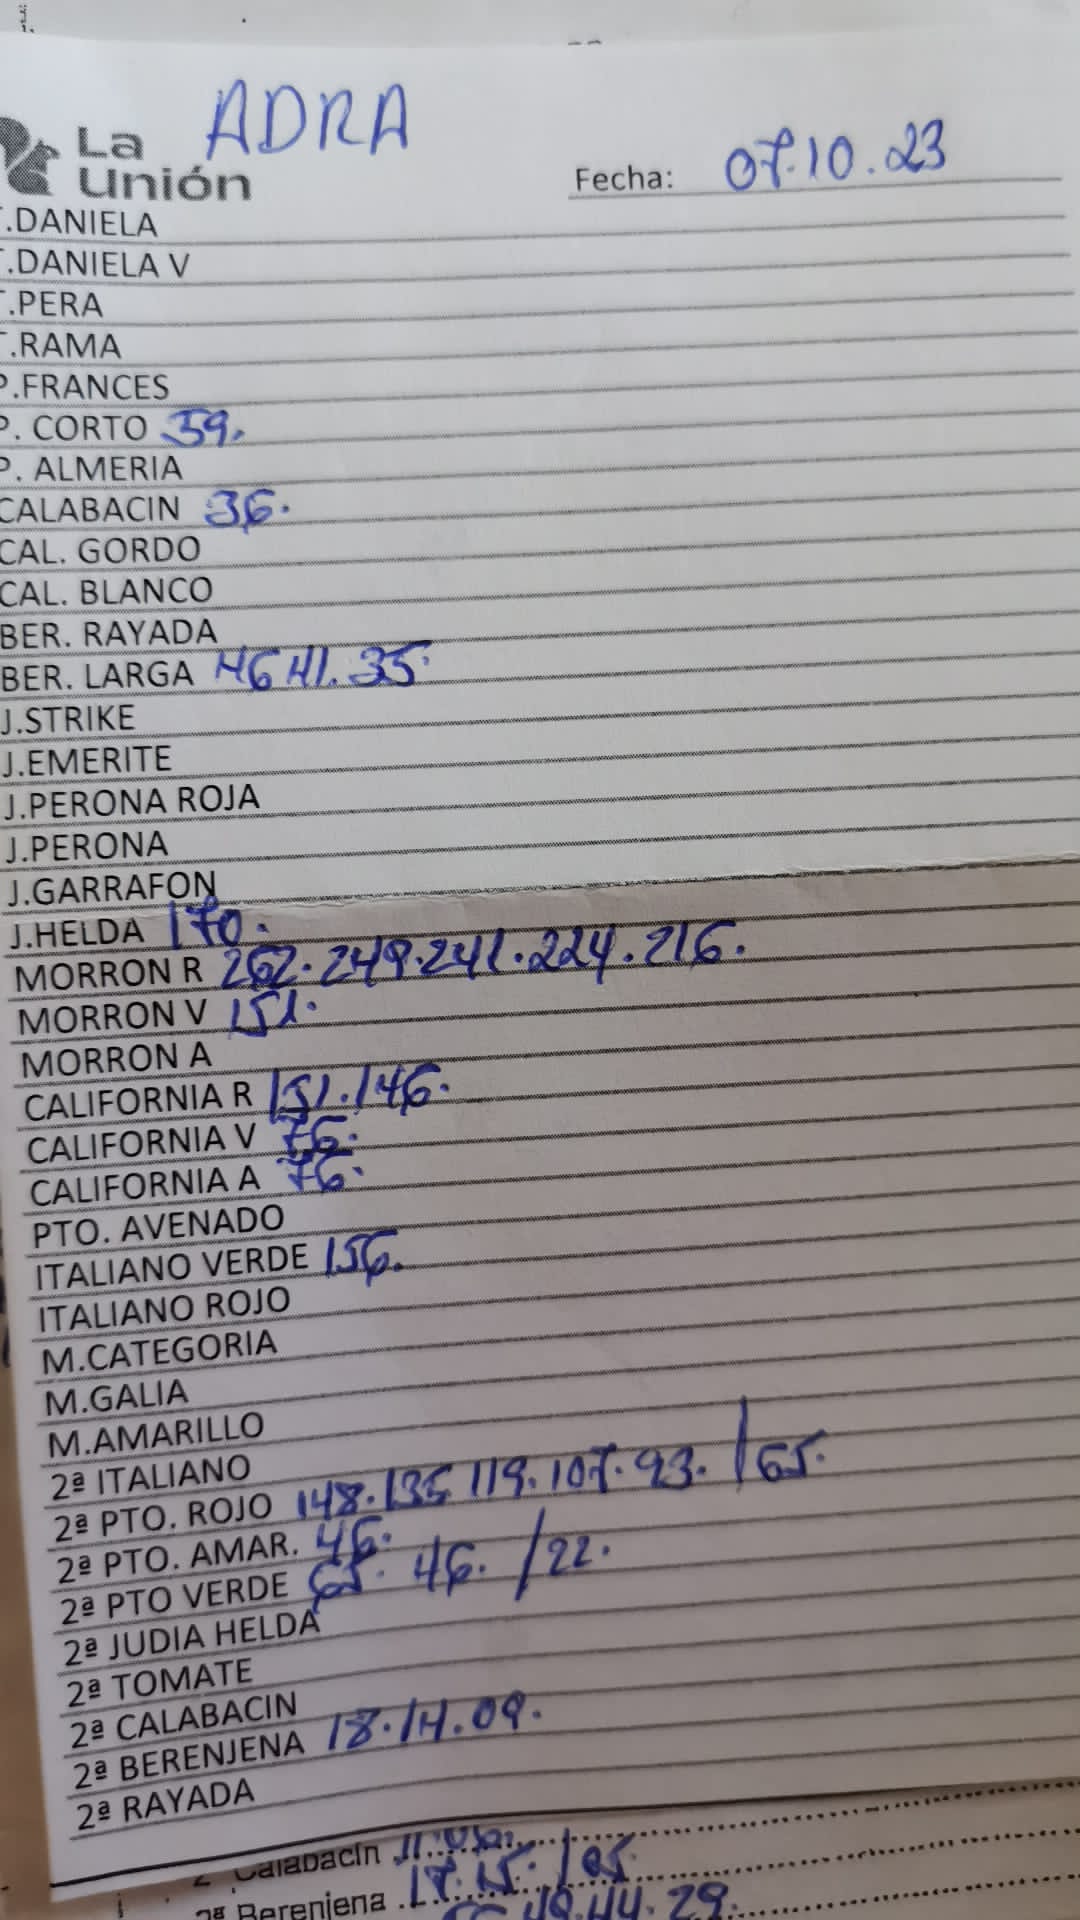 ADRA
La
Unión
Fecha: 07.10.23
.DANIELA
.DANIELA V
.PERA
.RAMA
P.FRANCES
P. CORTO 39.
P. ALMERIA
CALABACIN 36.
CAL. GORDO
CAL. BLANCO
BER. RAYADA
BER. LARGA 46 41. 35.
J.STRIKE
J.EMERITE
J.PERONA ROJA
J.PERONA
J.GARRAFON
J.HELDA 170.
MORRON R 262.249.241.224.216.
MORRON V 151.
MORRON A
CALIFORNIA R 151.146.
CALIFORNIA V 76.
CALIFORNIA A 76.
PTO. AVENADO
ITALIANO VERDE 156.
ITALIANO ROJO
M.CATEGORIA
M.GALIA
M.AMARILLO
2ª ITALIANO
2ª PTO. ROJO 148.135 119.107.93. / 65.
2ª PTO. AMAR. 46.
2ª PTO VERDE 65. 46. / 22.
2ª JUDIA HELDA
2ª TOMATE
2ª CALABACIN
2ª BERENJENA 18.14.09.
2ª RAYADA
Calabacin
2ª Berenjena 17.15. / 05.
44.29.